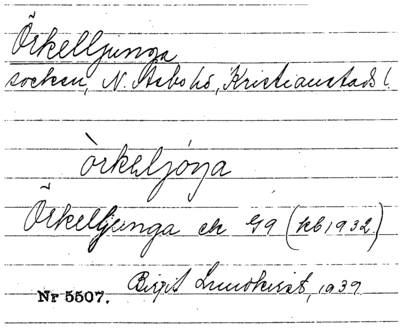 Örkelljunga
socken, N. Åsbo hd, Kristianstads l.
òrkeljóŋa
Örkelljunga ek G9 (kb 1932)
Birgit Lundkvist, 1939
Nr 5507.